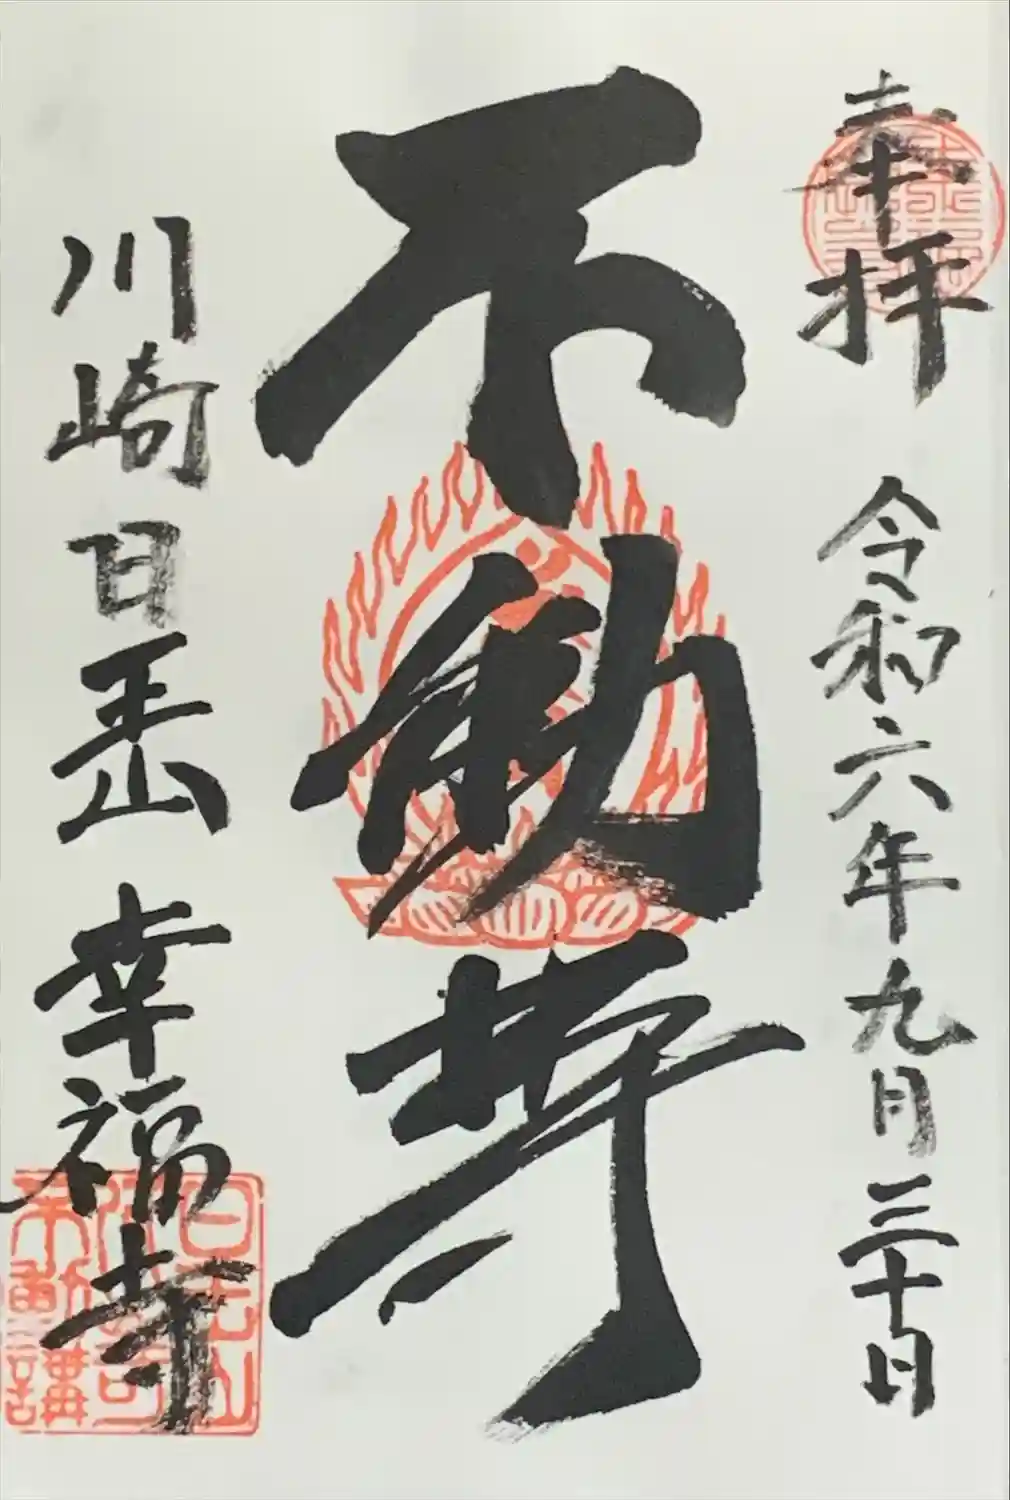 奉拝 令和六年九月三十日
不動尊
川崎 日玉山 幸福寺
不動講